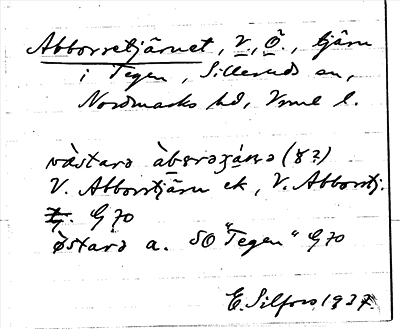 Abborretjärnet, V., Ö., tjärn
i Tegen, Silleruds sn,
Nordmarks hd, Vrml l.
västarə àbərəʒánə (ɤ?)
V. Abborrtjärn ek, V. Abborrtj.
G 70
östarə a. SO "Tegen" G 70
E. Silfors 1937.